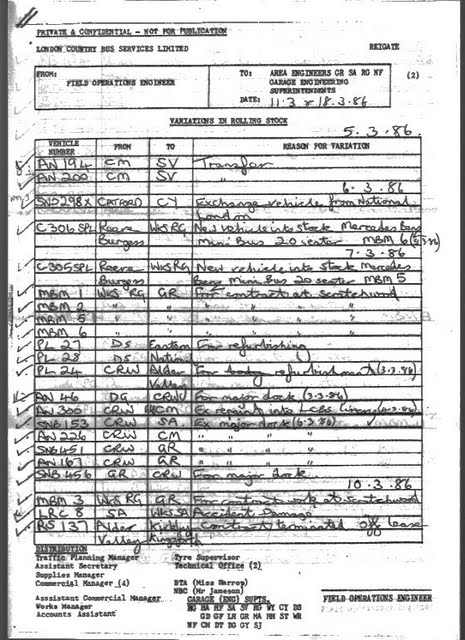 PRIVATE & CONFIDENTIAL - NOT FOR PUBLICATION
LONDON COUNTRY BUS SERVICES LIMITED REIGATE
FROM: FIELD OPERATIONS ENGINEER TO: AREA ENGINEERS GR SA RG NF (2)
GARAGE ENGINEERING
SUPERINTENDENTS
DATE: 11.3 18.3.86
VARIATIONS IN ROLLING STOCK
5.3.86.
VEHICLE NUMBER FROM TO REASON FOR VARIATION
AN 194 CM SV Transfer
AN 200 CM SV "
6.3.86
SND298X CATFORD CY Exchange vehicle from National
London
C306SPL Reeve WKS RG New vehicle into stock Mercedes Benz
Burgess Mini Bus 20 seater MBM 6 (5.3.86)
7.3.86
C305SPL Reeve WKS RG New vehicle into stock Mercedes
Burgess Benz Mini Bus 20 seater MBM 5
MBM 1 WKS RG GR For contract at Scratchwood
MBM 2 " " " " "
MBM 5 " " " " "
MBM 6 " " " " "
PL 27 DS Eastern For refurbishing
PL 28 DS National ( )
PL 24 CRW Alder For refurbishment (3.3.86)
Valley
AN 46 DG CRW For major dock (3.3.86)
AN 300 CRW CM Ex repaint into LCBS livery
SNB 153 CRW SA Ex major dock (6.3.86)
AN 226 CRW CM " " "
SNB 451 CRW GR " " "
AN 167 CRW GR " " "
SNB 456 GR CRW For major dock
10.3.86
MBM 3 WKS RG GR For contract work at Scratchwood
LRC 8 SA WKS SA Accident Damage
RS 137 Alder Kirkby Contract terminated off lease
Valley
DISTRIBUTION
Traffic Planning Manager Tyre Supervisor
Assistant Secretary Technical Office (2)
Supplies Manager
Commercial Manager (4) BTA (Miss Harrop)
NBC (Mr Jameson)
Assistant Commercial Manager GARAGE (ENG) SUPTS. FIELD OPERATIONS ENGINEER
Works Manager HG HA HF SA SV RG WY CY DS
Accounts Assistant GD GF LH GR HA HH ST WR
NF CH DT DG GY SJ